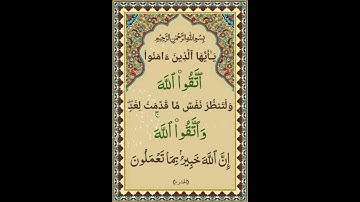 بِسْمِ اللَّهِ الرَّحْمَٰنِ الرَّحِيمِ
يَٰٓأَيُّهَا ٱلَّذِينَ ءَامَنُوا۟
ٱتَّقُوا۟ ٱللَّهَ
وَلْتَنظُرْ نَفْسٌ مَّا قَدَّمَتْ لِغَدٍۖ
وَٱتَّقُوا۟ ٱللَّهَۚ
إِنَّ ٱللَّهَ خَبِيرٌۢ بِمَا تَعْمَلُونَ